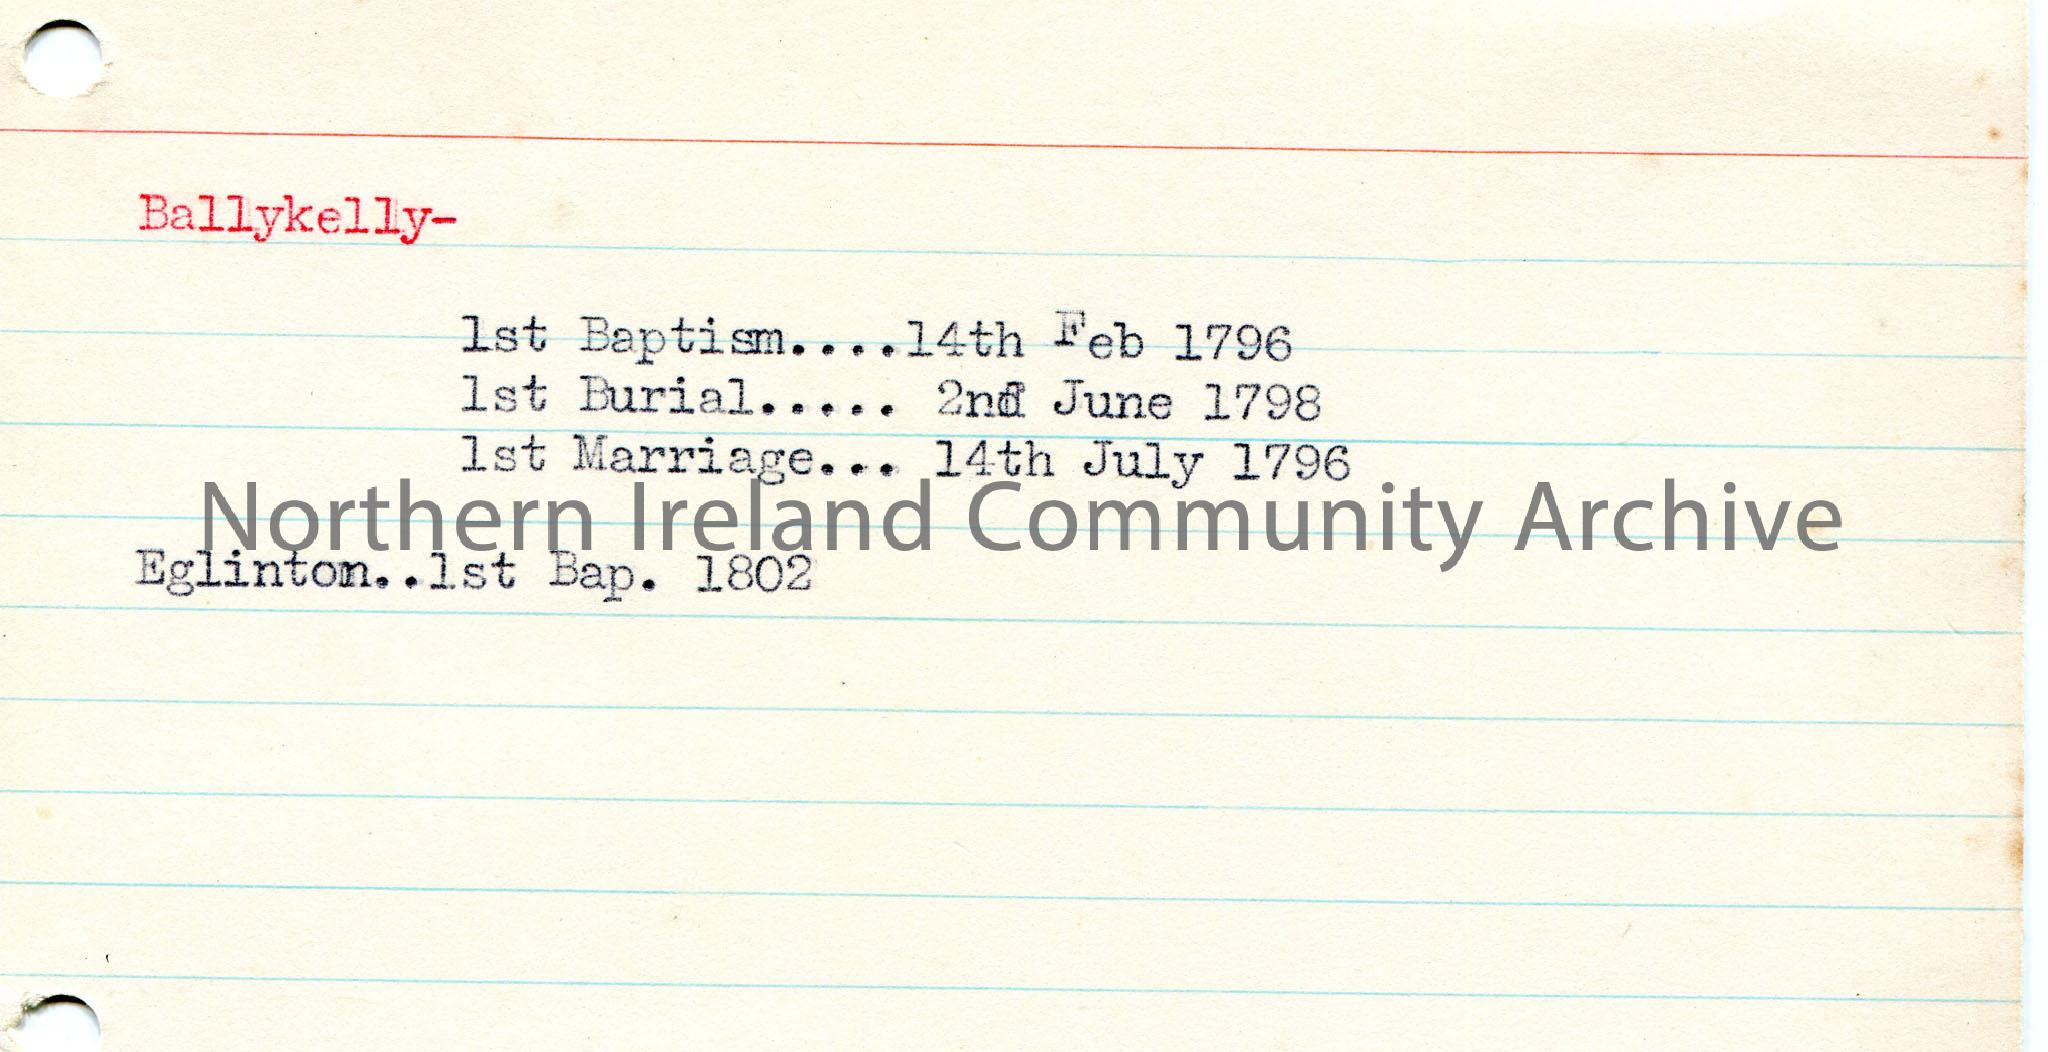 Ballykelly-
1st Baptism....14th Feb 1796
1st Burial..... 2nd June 1798
1st Marriage... 14th July 1796
Northern Ireland Community Archive
Eglinton..1st Bap. 1802